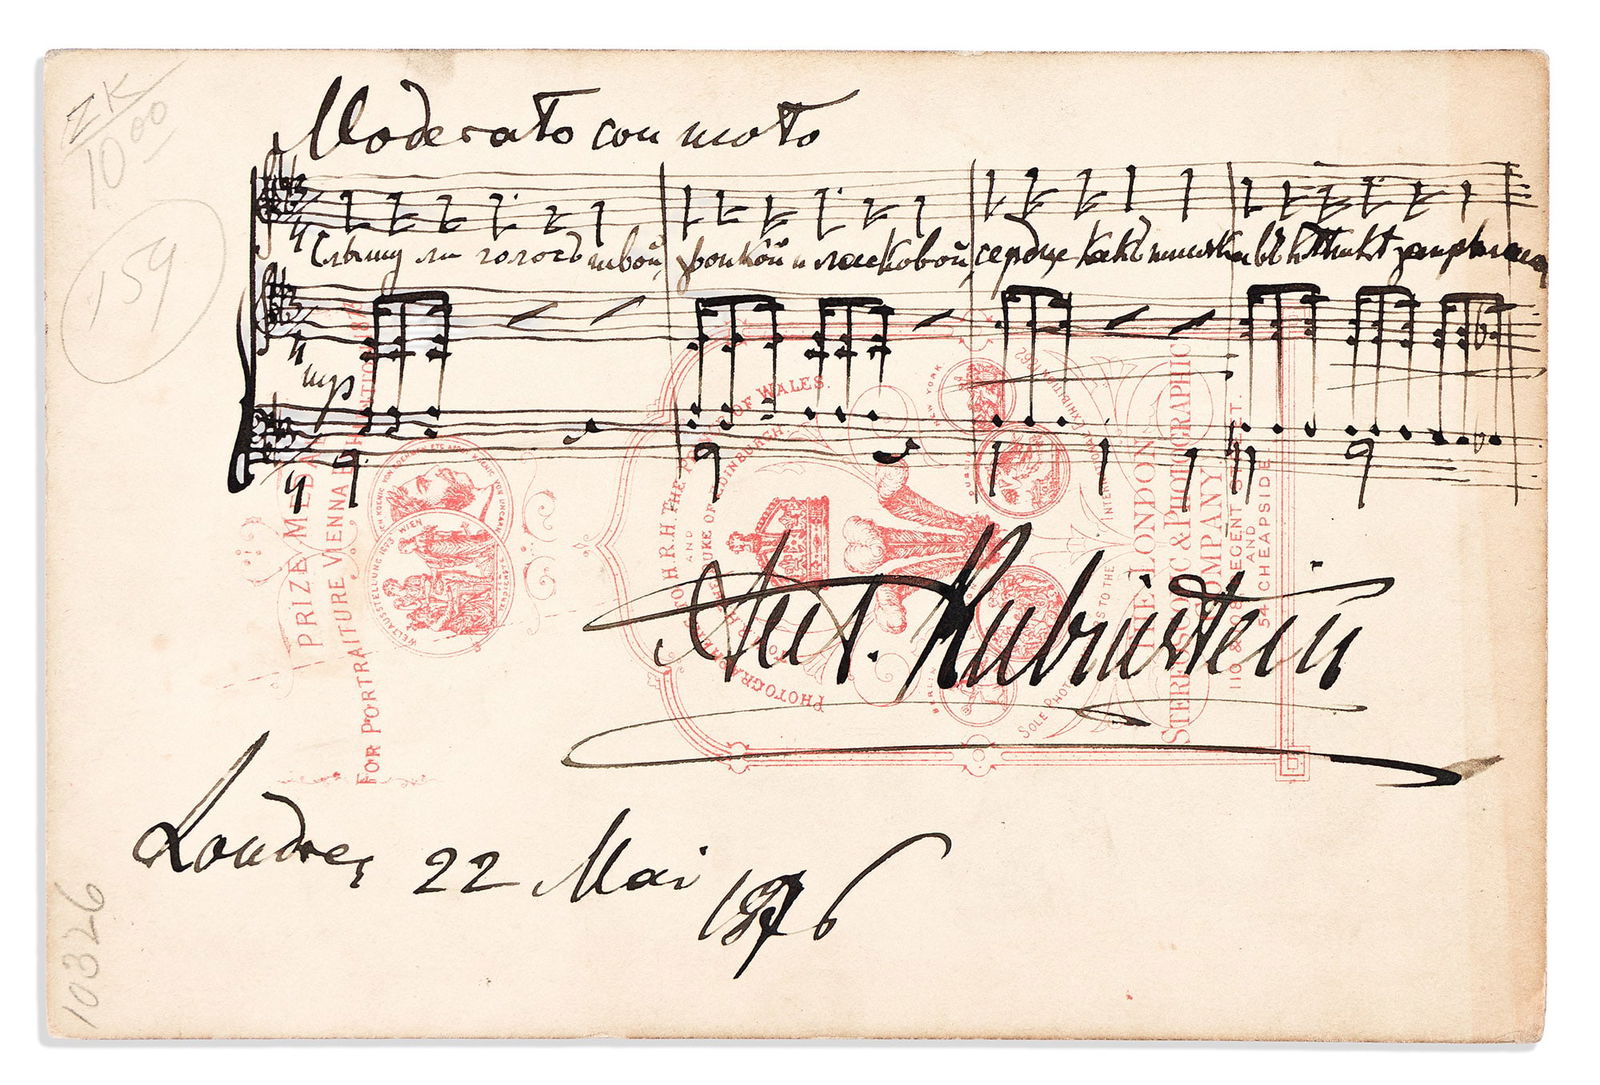 ZK
10 00
159
Moderato con moto
Слышу ли голосъ твой, звонкой и ласковой, сердце какъ птичка въ клѣткѣ запрыгаетъ
mp
Ant. Rubinstein
Londres 22 Mai 1876
10326
PRIZE MEDAL
FOR PORTRAITURE VIENNA EXHIBITION 1873
WELTAUSSTELLUNG 1873 WIEN
PHOTOGRAPHERS TO H.R.H. THE PRINCE OF WALES.
AND
TO H.R.H. THE DUKE OF EDINBURGH
NEW YORK
BERLIN
SOLE PHOTOGRAPHERS TO THE INTERNATIONAL EXHIBITION 1862
THE LONDON
STEREOSCOPIC & PHOTOGRAPHIC
COMPANY
110 & 108 REGENT STREET.
AND
54 CHEAPSIDE